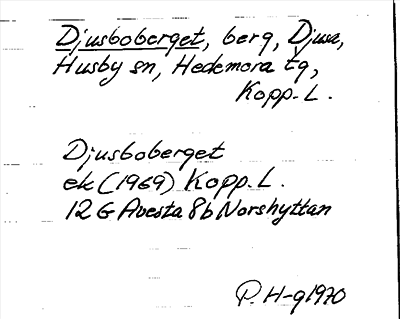 Djusboberget, berg, Djusa,
Husby sn, Hedemora tg,
Kopp. L.
Djusboberget
ek (1969) Kopp. L.
12 G Avesta 8b Norshyttan
P. H-g 1970